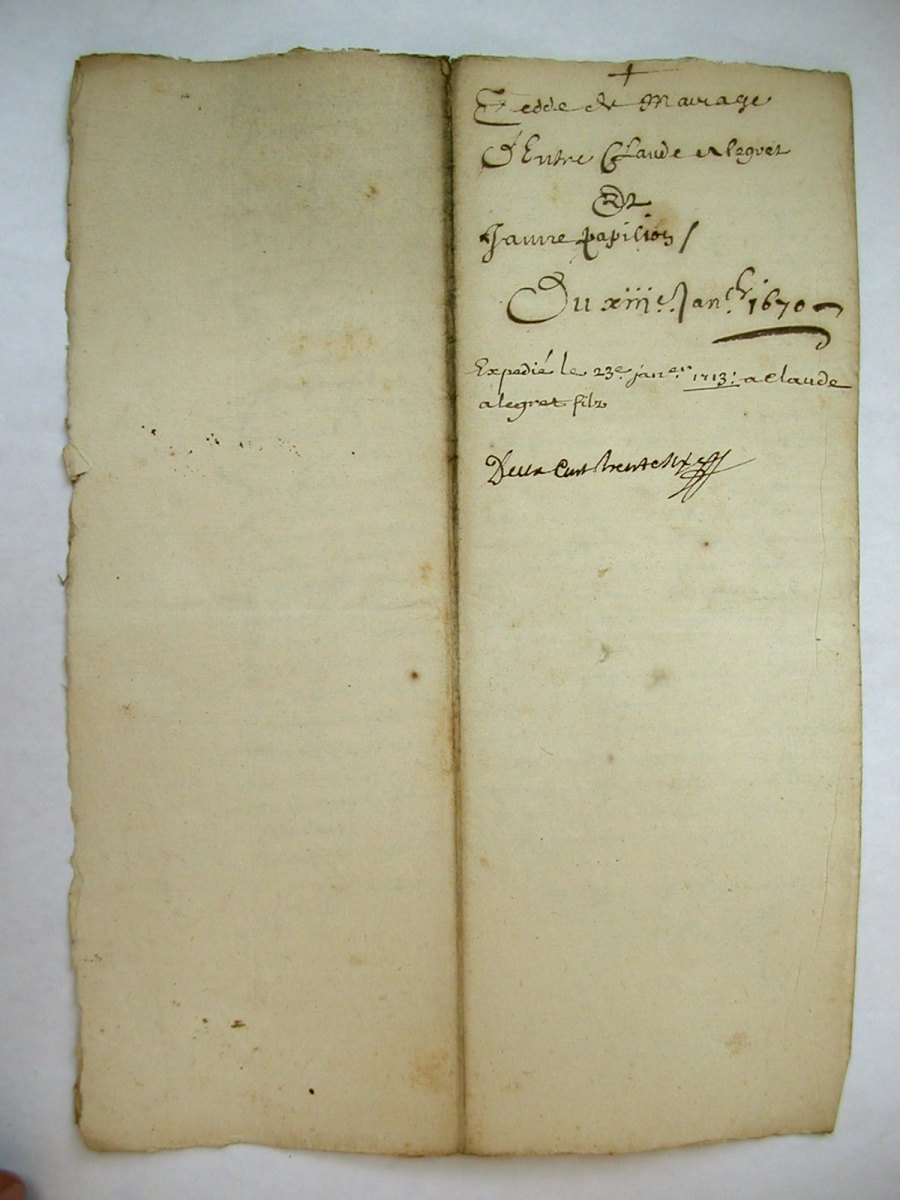 Cedde de Mariage
D'Entre Claude Alegret
Et
Janne papilion /
Du xiiie. Janer. 1670
Expedié le 23e. janer. 1713. a Claude
alegret filz
Deux Cent trente six